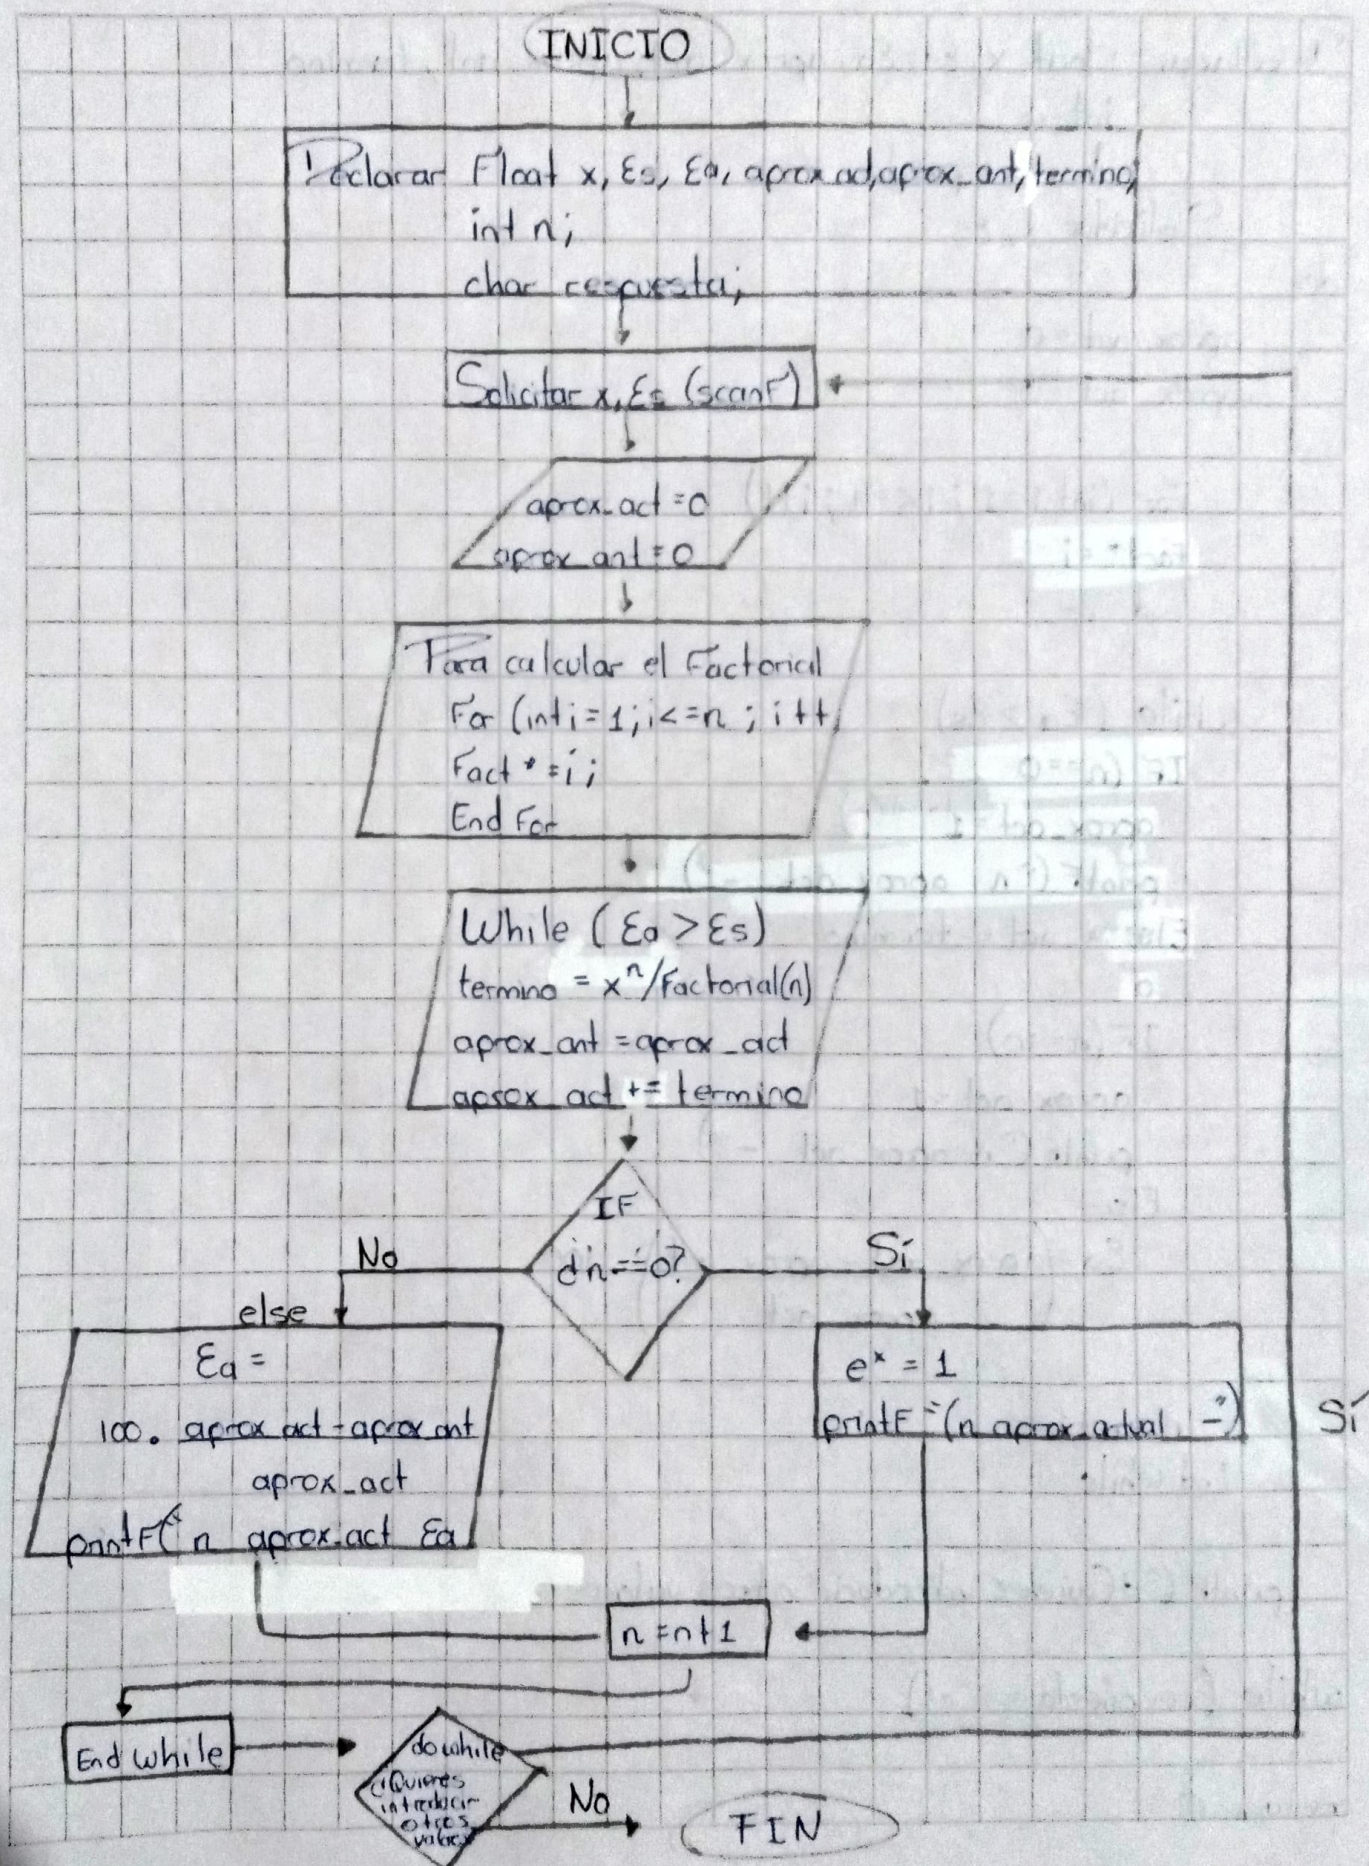 INICIO
Declarar Float x, Es, Ea, aprox_act, aprox_ant, termino;
int n;
char respuesta;
Solicitar x, Es (scanF)
aprox_act = 0
aprox_ant = 0
Para calcular el Factorial
For (int i = 1; i <= n ; i++)
Fact * = i;
End For
While (Ea > Es)
termino = xⁿ/Factorial(n)
aprox_ant = aprox_act
aprox_act += termino
IF
¿n == 0?
No
Sí
else
Ea =
100. aprox_act - aprox_ant
aprox_act
printF(" n aprox_act Ea
eˣ = 1
printF "(n aprox_actual -")
Sí
n = n+1
End while
do while
¿Quieres
introducir
otros
valores
No
FIN